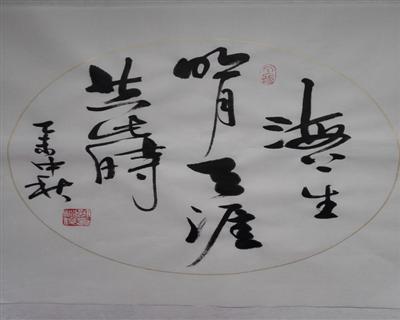 海上生
明月天涯
共此時
中秋